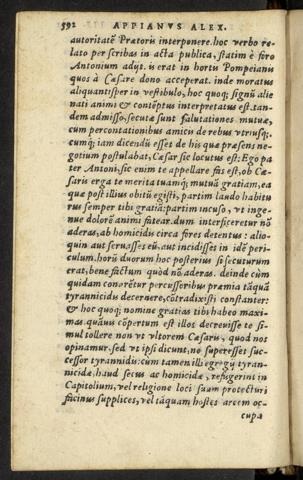 592 APPIANVS ALEX.
autoritatē Prætoris interponere. hoc verbo re-
lato per scribas in acta publica, statim è foro
Antonium adijt. is erat in hortis Pompeianis
quos à Cæsare dono acceperat. inde moratus
aliquantisper in vestibulo, hoc quoq; signū alie
nati animi & contēptus interpretatus est. tan-
dem admisso, secutæ sunt salutationes mutuæ,
cum percontationibus amicis de rebus vtriusq;.
cumq; iam dicendū esset de his quæ præsens ne-
gotium postulabat, Cæsar sic locutus est: Ego pa
ter Antoni, sic enim te appellare fas est, ob Cæ-
saris erga te merita tuamq; mutuā gratiam, ea
quæ post illius obitū egisti, partim laudo habitu
rus semper tibi gratiā: partim incuso, vt inge-
nue dolorē animi fatear. dum interficeretur nō
aderas, ab homicidis circa fores detentus: alio-
quin aut seruasses eū, aut incidisses in idē peri-
culum. horū duorum hoc posterius si secuturum
erat, bene factum quòd nō aderas. deinde cùm
quidam conarētur percussoribus præmia tāquā
tyrannicidis decernere, cōtradixisti constanter:
& hoc quoq; nomine gratias tibi habeo maxi-
mas. quāuis cōpertum est illos decreuisse te si-
mul tollere non vt vltorem Cæsaris, quod nos
opinamur, sed vt ipsi dicunt, ne superesset suc-
cessor tyrannidis: cùm tamen illi egregij tyran-
nicidæ, haud secus ac homicidæ, refugerint in
Capitolium, vel religione loci suam protecturi
facinus supplices, vel tāquam hostes arcem oc-
cupa